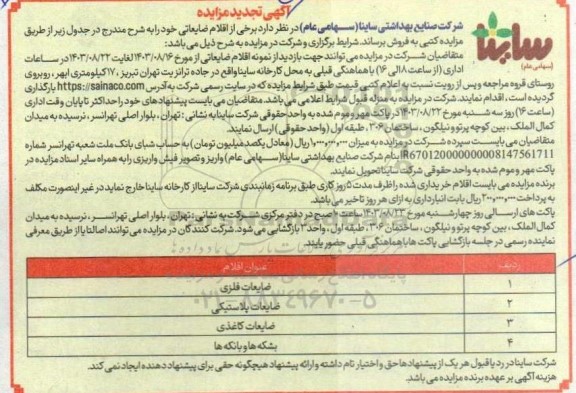 آگهی تجدید مزایده
ساینا
(سهامی عام)
شرکت صنایع بهداشتی ساینا (سهامی عام) در نظر دارد برخی از اقلام ضایعاتی خود را به شرح مندرج در جدول زیر از طریق
مزایده کتبی به فروش برساند. شرایط برگزاری و شرکت در مزایده به شرح ذیل می باشد:
متقاضیان شرکت در مزایده می توانند جهت بازدید از نمونه اقلام ضایعاتی از مورخ ۱۴۰۳/۰۸/۱۶ لغایت ۱۴۰۳/۰۸/۲۲ در ساعات
اداری (از ساعت ۸ الی ۱۶) با هماهنگی قبلی به محل کارخانه ساینا واقع در جاده ترانزیت تهران تبریز، ۱۷ کیلومتری ابهر، روبروی
روستای قروه مراجعه و پس از رویت نسبت به اعلام کتبی قیمت طبق شرایط مزایده که در سایت رسمی شرکت به آدرس https://sainaco.com بارگذاری
گردیده است، اقدام نمایند. شرکت در مزایده به منزله قبول شرایط اعلامی می باشد. متقاضیان می بایست پیشنهادهای خود را حداکثر تا پایان وقت اداری
(ساعت ۱۶) روز سه شنبه مورخ ۱۴۰۳/۰۸/۲۲ در پاکت مهر و موم شده به واحد حقوقی شرکت ساینا به نشانی: تهران، بلوار اصلی تهرانسر، نرسیده به میدان
کمال الملک، بین کوچه پرتو و نیلگون، ساختمان ۳۰۶، طبقه اول (واحد حقوقی) ارسال نمایند.
متقاضیان می بایست سپرده شرکت در مزایده به میزان ۱,۰۰۰,۰۰۰,۰۰۰ ریال (معادل یکصد میلیون تومان) به حساب شبای بانک ملت شعبه تهرانسر شماره
IR670120000000008147561711 بنام شرکت صنایع بهداشتی ساینا (سهامی عام) واریز و تصویر فیش واریزی را به همراه سایر اسناد مزایده در
پاکت مهر و موم شده به واحد حقوقی شرکت ساینا تحویل نمایند.
برنده مزایده می بایست اقلام خریداری شده را ظرف مدت ۵ روز کاری طبق برنامه زمانبندی شرکت ساینا از کارخانه ساینا خارج نماید در غیر اینصورت مکلف
به پرداخت ریال بابت انبارداری به ازای هر روز تاخیر می باشد.
پاکت های ارسالی روز چهارشنبه مورخ ۱۴۰۳/۰۸/۲۳ ساعت صبح در دفتر مرکزی شرکت به نشانی: تهران، بلوار اصلی تهرانسر، نرسیده به میدان
کمال الملک، بین کوچه پرتو و نیلگون، ساختمان ۳۰۶، طبقه اول، واحد ۳ بازگشایی می شود. شرکت کنندگان در مزایده می توانند اصالتا یا از طریق معرفی
نماینده رسمی در جلسه بازگشایی پاکت ها با هماهنگی قبلی حضور یابند.
ردیف عنوان اقلام
۱ ضایعات فلزی
۲ ضایعات پلاستیکی
۳ ضایعات کاغذی
۴ بشکه ها و بانکه ها
شرکت ساینا در رد یا قبول هر یک از پیشنهادها حق و اختیار تام داشته و ارائه پیشنهاد هیچگونه حقی برای پیشنهاد دهنده ایجاد نمی کند.
هزینه آگهی بر عهده برنده مزایده می باشد.